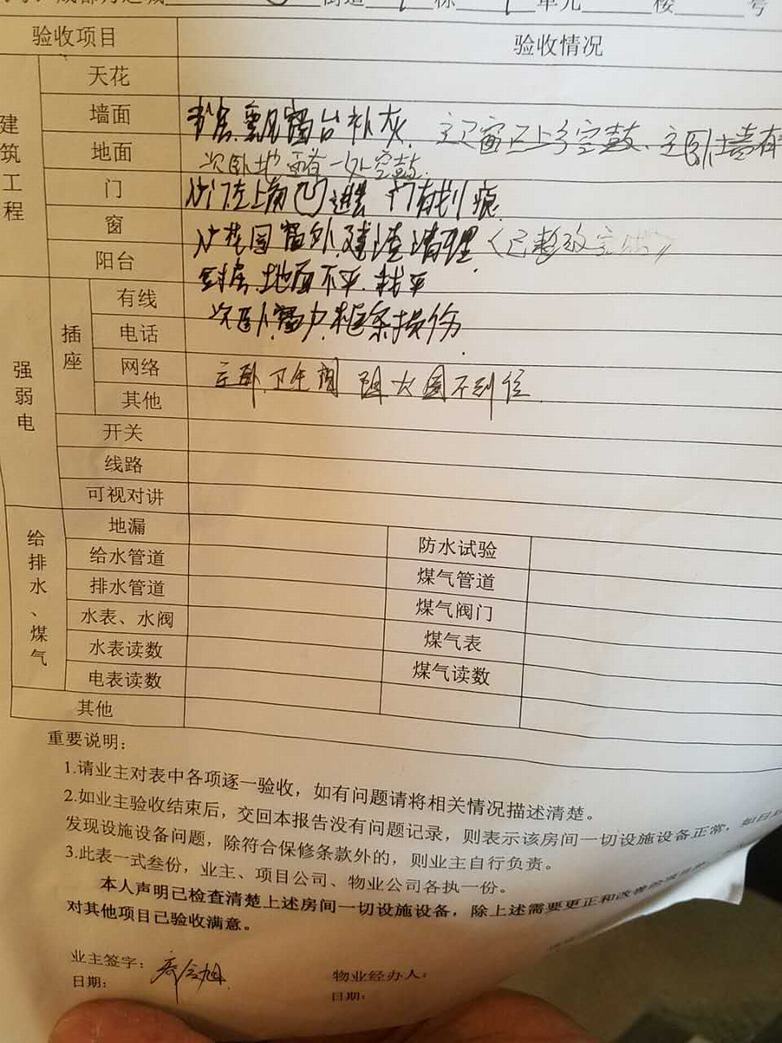 街道 栋 单元 楼 号
验收项目 验收情况
建筑工程
天花
墙面 书房飘窗台补灰. 主卫窗 上 空鼓、主卧墙有
地面 次卧地面有一处空鼓.
门 入门左上角凹进去 门有划痕
窗 入花园窗外建渣清理(已整改完
阳台 地面不平.找平
强弱电
插座
有线 次卧窗户框条损伤.
电话
网络 主卧.卫生间 阻水 不到位.
其他
开关
线路
可视对讲
给排水、煤气
地漏 防水试验
给水管道 煤气管道
排水管道 煤气阀门
水表、水阀 煤气表
水表读数 煤气读数
电表读数
其他
重要说明:
1.请业主对表中各项逐一验收,如有问题请将相关情况描述清楚。
2.如业主验收结束后,交回本报告没有问题记录,则表示该房间一切设施设备正常,如日后
发现设施设备问题,除符合保修条款外的,则业主自行负责。
3.此表一式叁份,业主、项目公司、物业公司各执一份。
本人声明已检查清楚上述房间一切设施设备,除上述需要更正和改善的项目
对其他项目已验收满意。
业主签字: 物业经办人:
日期: 日期: